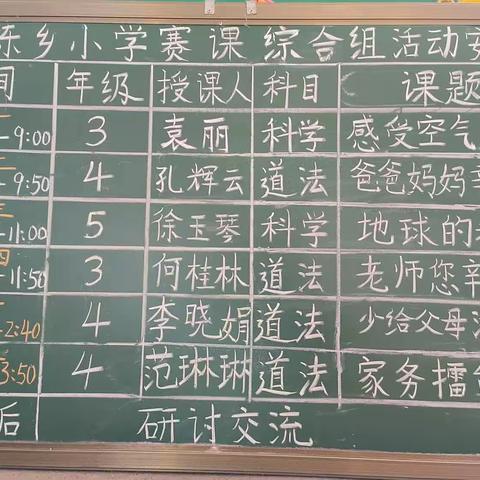 东乡小学赛课综合组活动安
间 年级 授课人 科目 课题
9:00 3 袁丽 科学 感受空气
二 9:50 4 孔辉云 道法 爸爸妈妈辛
三 11:00 5 徐玉琴 科学 地球的
四 11:50 3 何桂林 道法 老师您辛
2:40 4 李晓娟 道法 少给父母添
3:50 4 范琳琳 道法 家务擂台
后 研讨交流